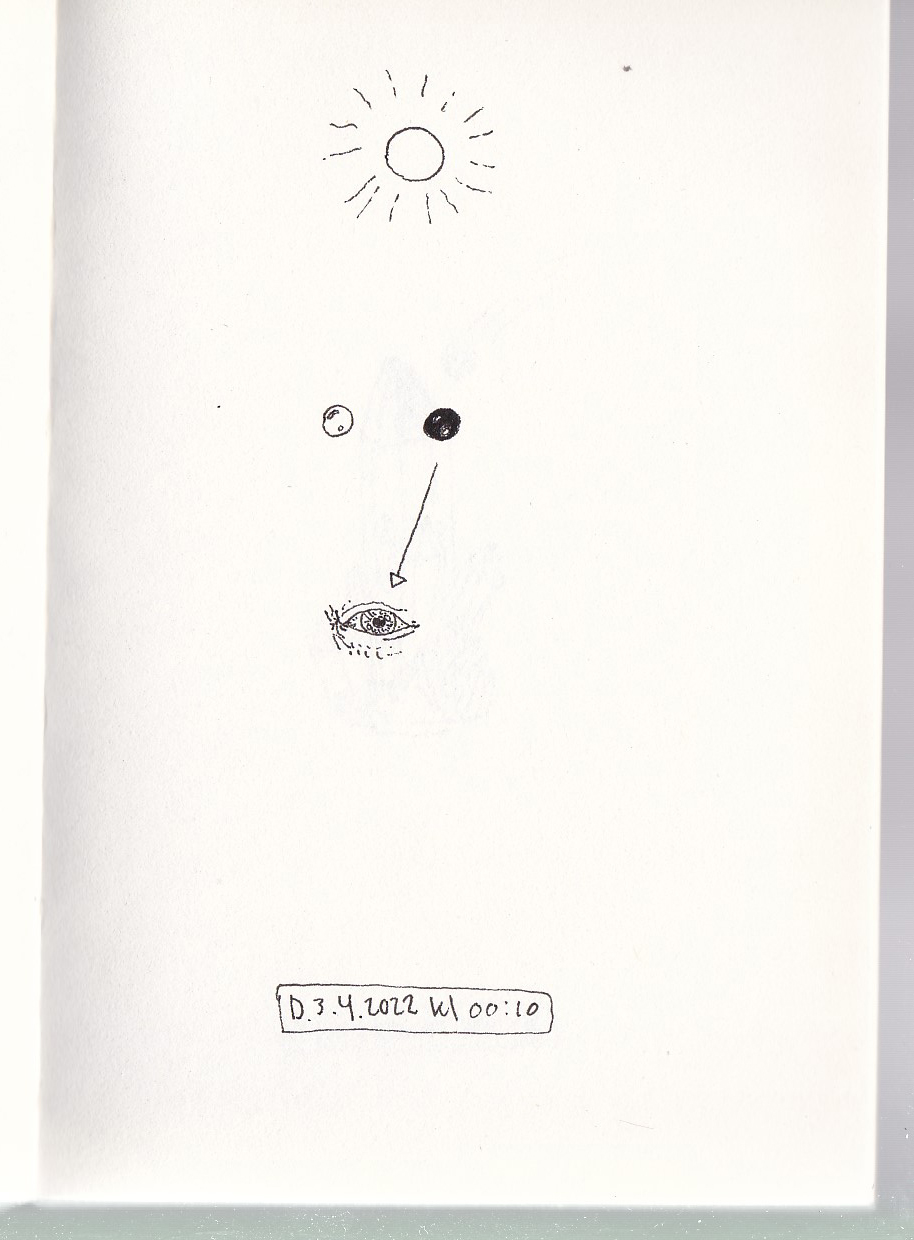 D.3.4.2022 kl 00:10